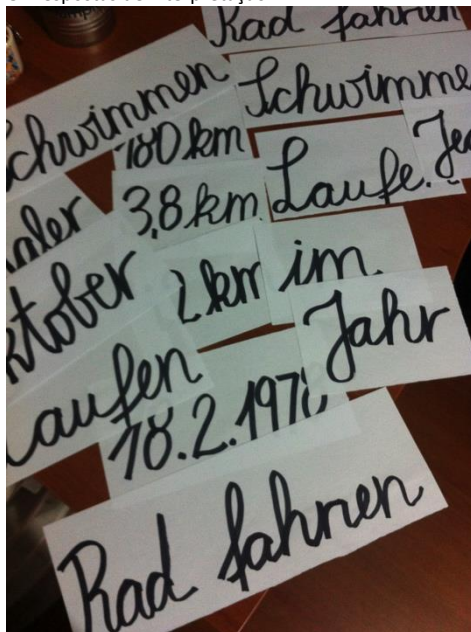 Rad fahren
Schwimmen
chwimmen
180 km
3,8 km
Laufe
Je
aler
ktober
2 km
im
Jahr
aufen
18.2.197
Rad fahren